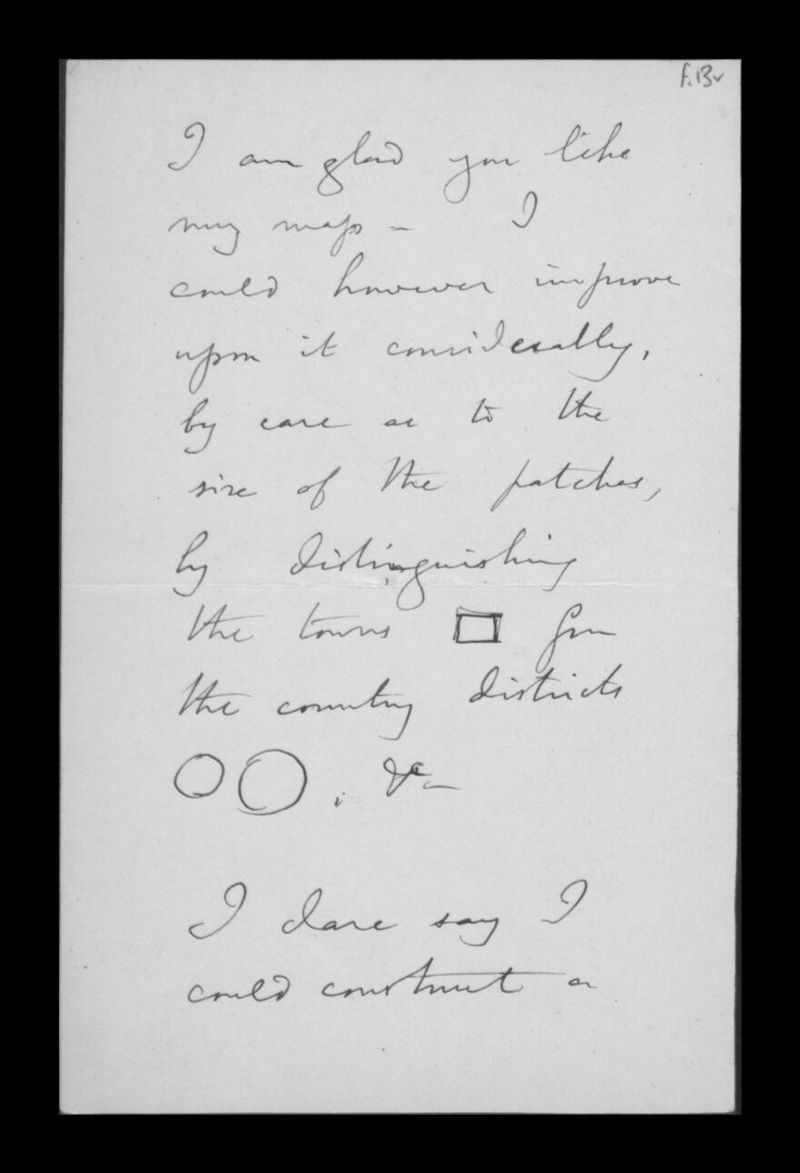 f.13v
I am glad you like
my map – I
could however improve
upon it considerably,
by care as to the
size of the patches,
by distinguishing
the towns from
the country districts
; &c –
I dare say I
could construct a